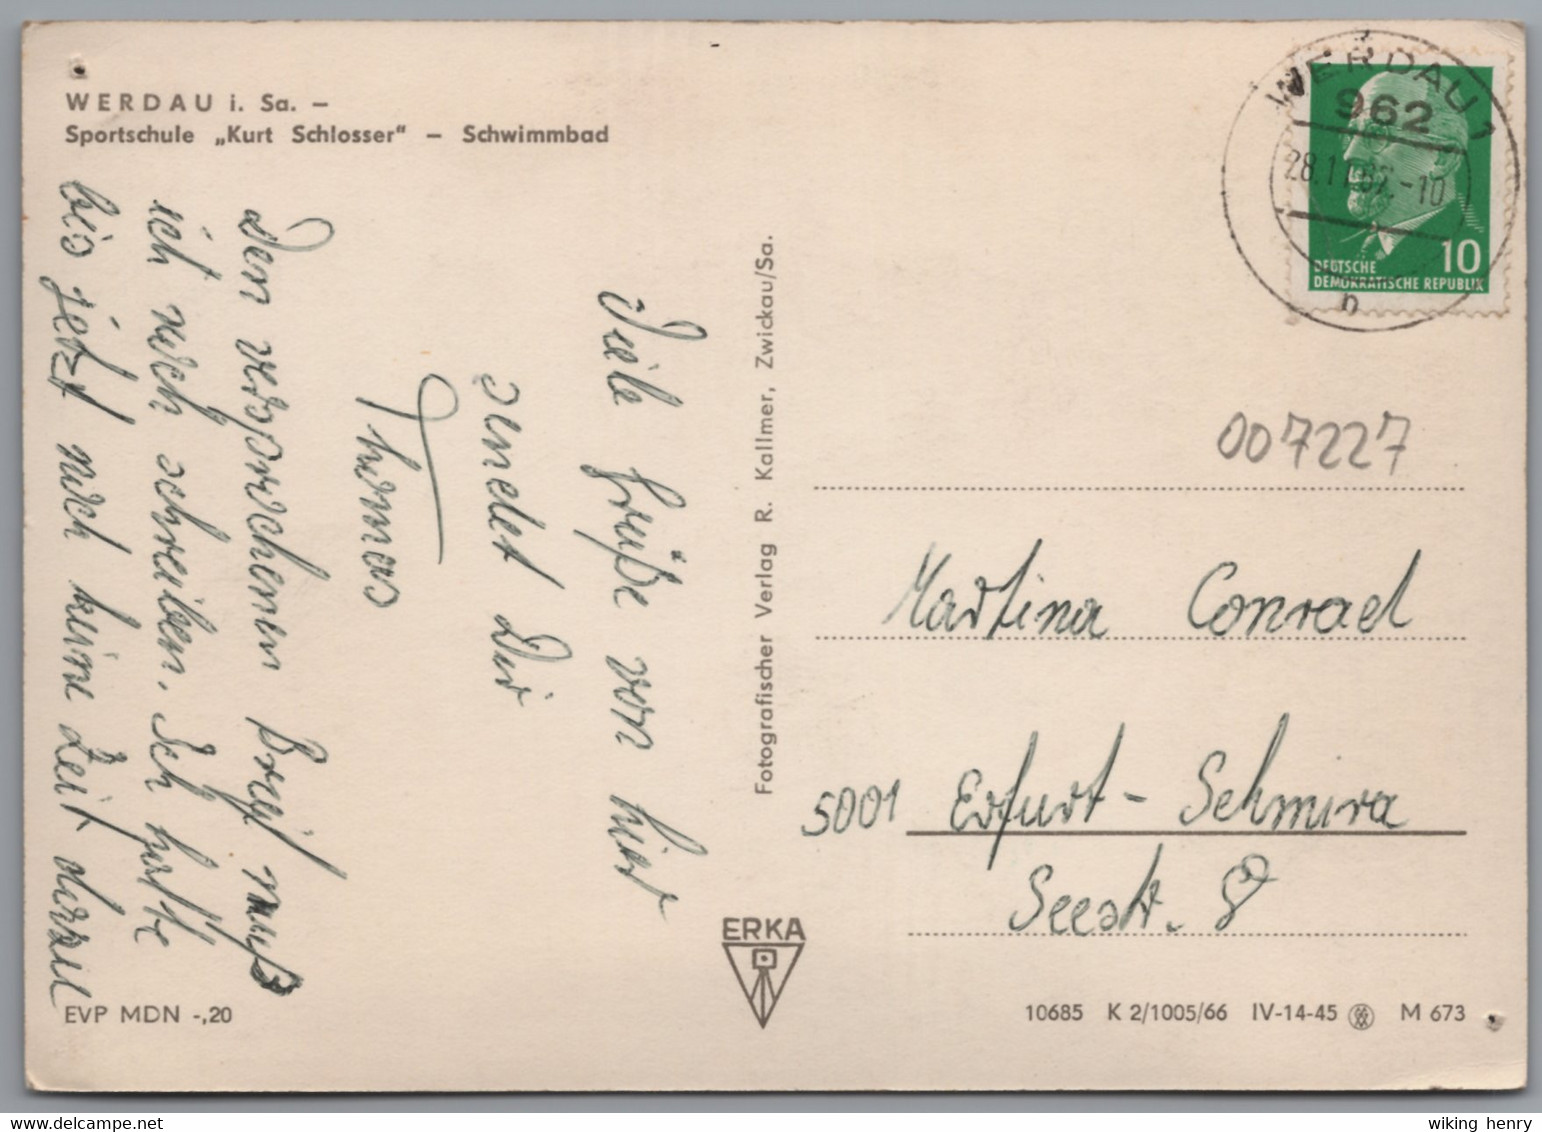 WERDAU i. Sa. –
Sportschule „Kurt Schlosser" – Schwimmbad
Viele Grüße von hier
sendet Dir
Thomas
Den versprochenen Brief muß
ich noch schreiben. Ich hatte
bis jetzt noch keine Zeit dazu
EVP MDN -,20
Fotografischer Verlag R. Kallmer, Zwickau/Sa.
ERKA
WERDAU 1
962
-10
h
10
DEUTSCHE
DEMOKRATISCHE REPUBLIK
007227
Martina Conrad
5001 Erfurt - Schmira
Seestr. 8
10685 K 2/1005/66 IV-14-45 M 673
wiking henry